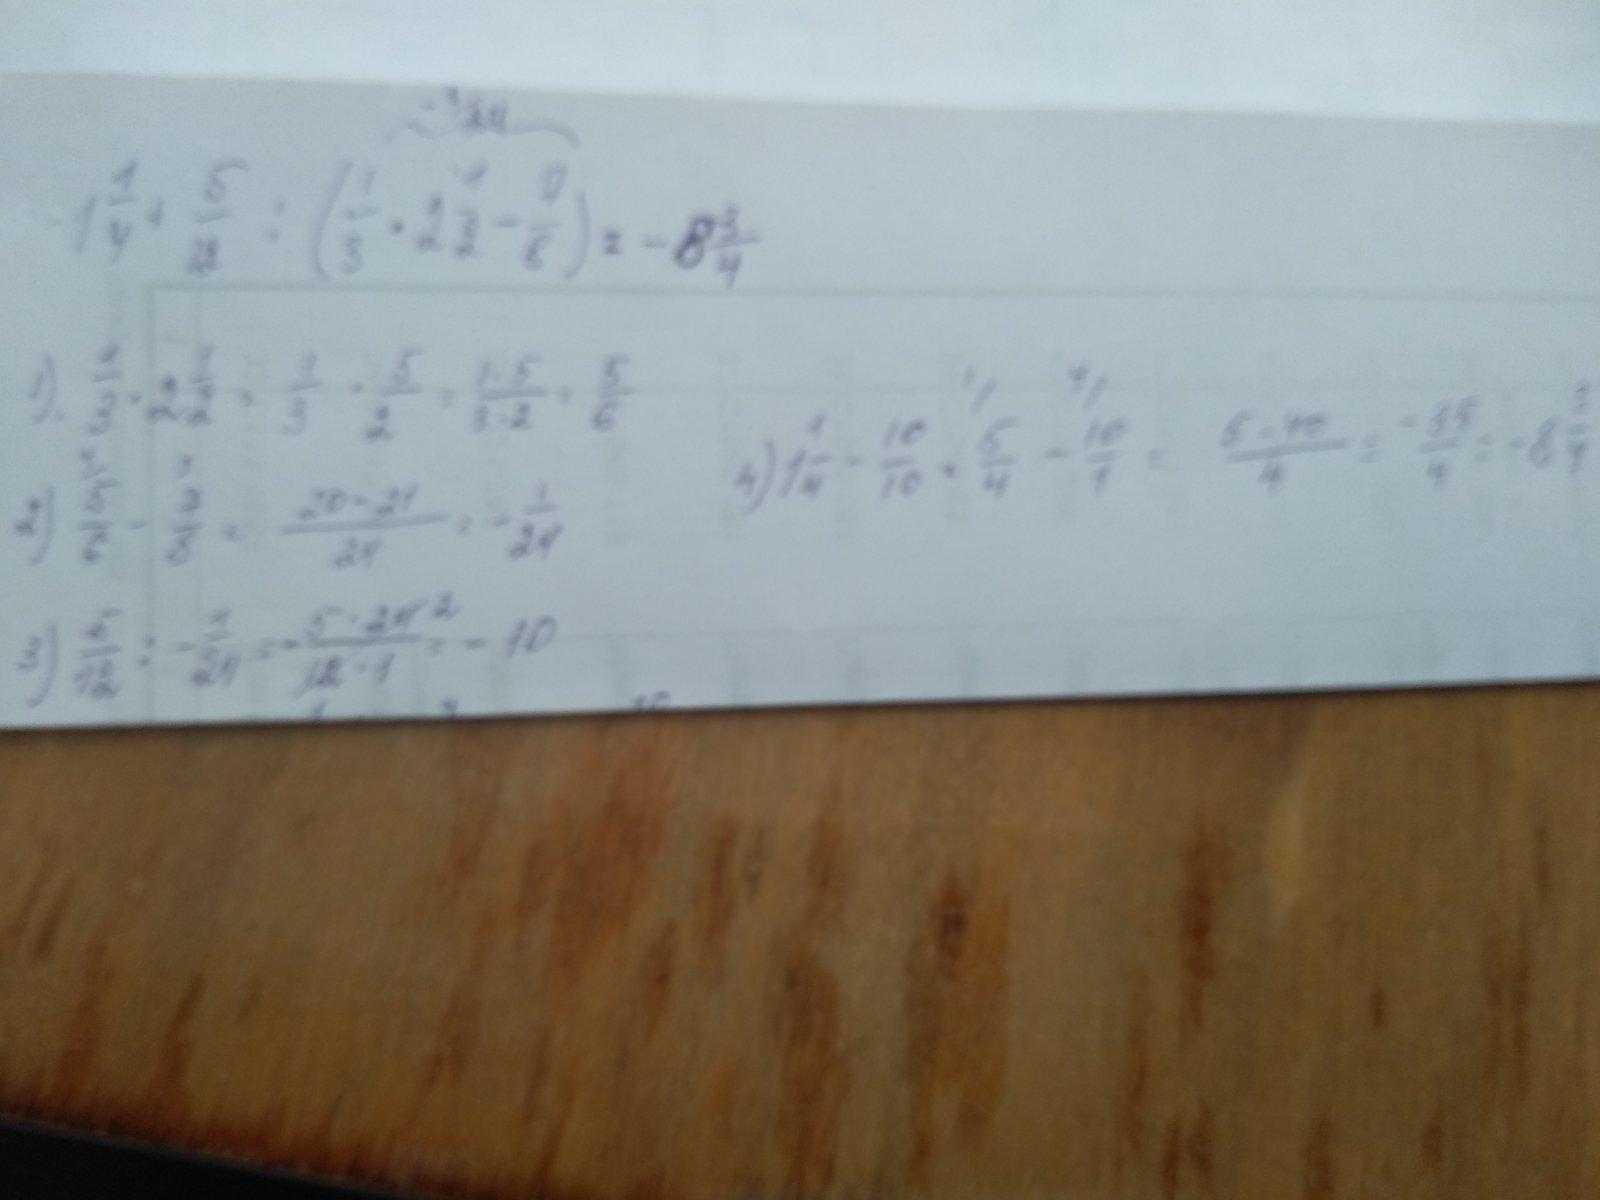 - 1/24
1 1/4 + 5/12 : (1/3 · 2 1/2 - 7/8) = - 8 3/4
1). 1/3 · 2 1/2 = 1/3 · 5/2 = 1·5/3·2 = 5/6
2) 5/6 - 7/8 = 20-21/24 = - 1/24
3) 5/12 : - 1/24 = - 5·24 2/12·1 = - 10
4) 1 1/4 - 10/10 = 5/4 - 10/1 = 5-40/4 = -35/4 = -8 3/4